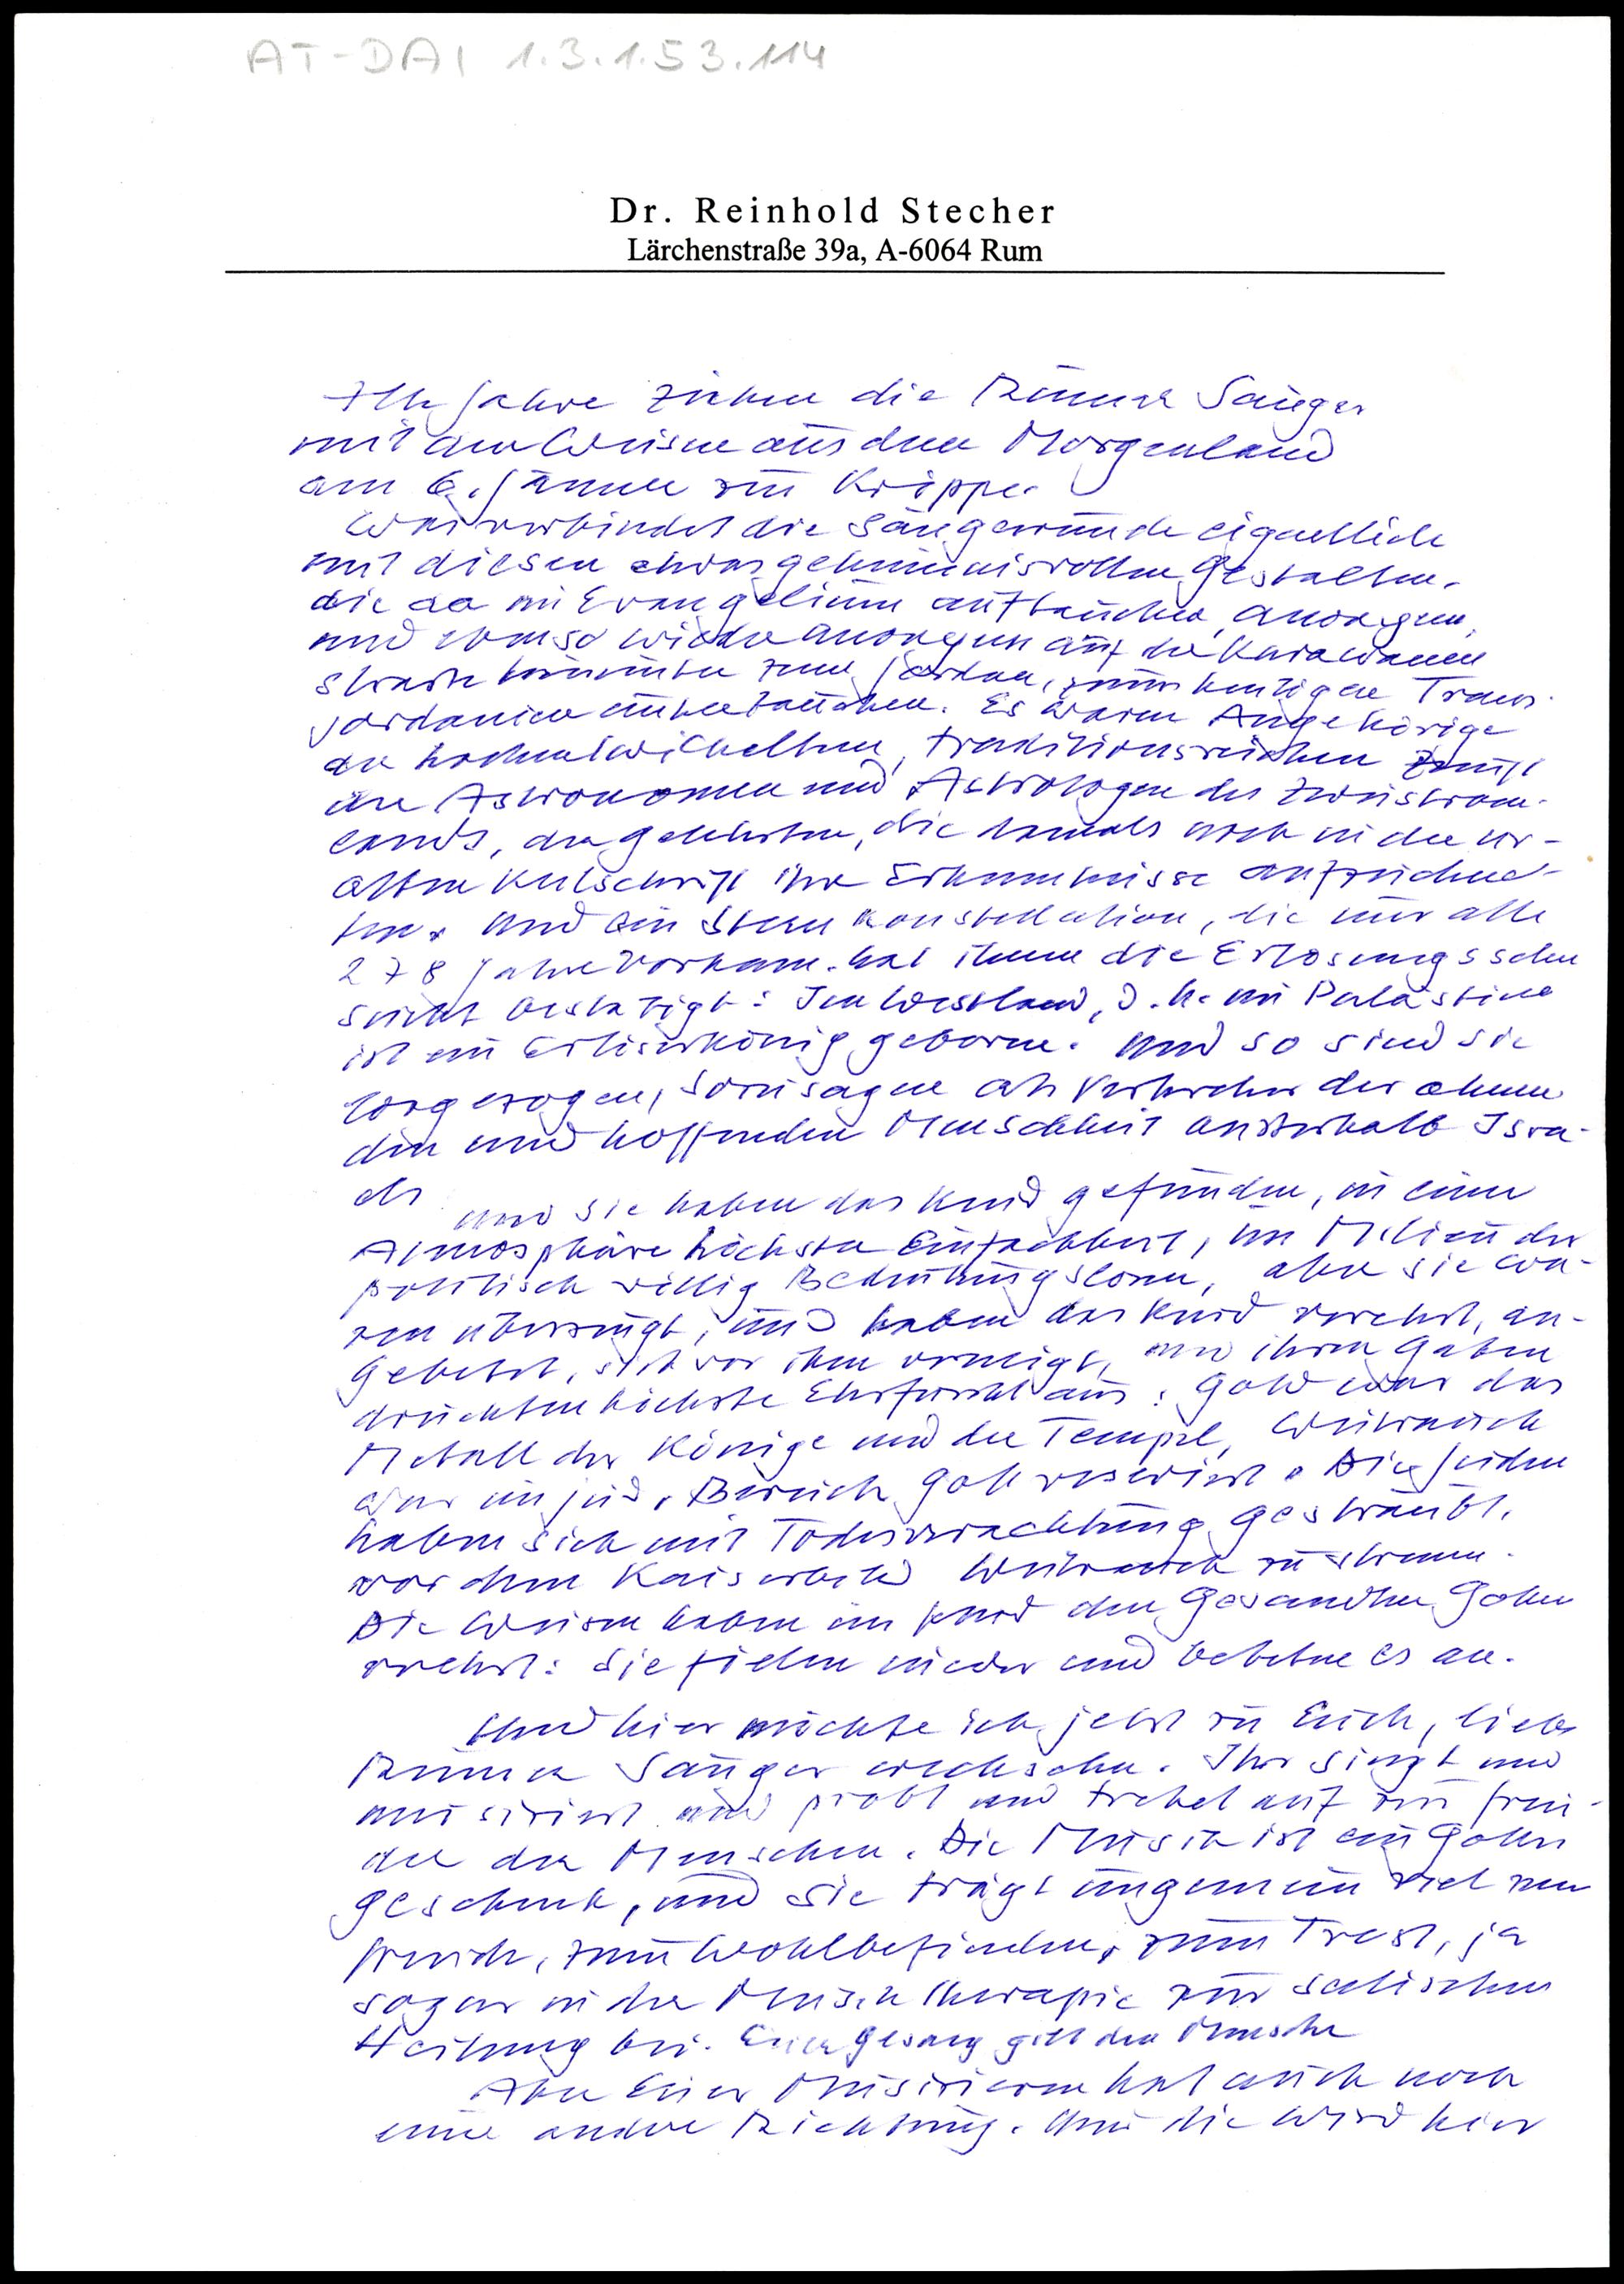 AT-DAI 1.3.1.53.114
Dr. Reinhold Stecher
Lärchenstraße 39a, A-6064 Rum
Alle Jahre ziehen die Rumer Sänger
mit den Weisen aus dem Morgenland
am 6. Jänner zur Krippe.
Was verbindet die Sängerrunde eigentlich
mit diesen etwas geheimnisvollen Gestalten,
die da im Evangelium auftauchen, anonym,
und ebenso wieder anonym auf der Karawanen
straße hinunter zum Jordan, zum heutigen Trans-
jordanien untertauchen. Es waren Angehörige
der hochentwickelten, traditionsreichen Zunft
der Astronomen und Astrologen des Zweistrom-
lands, der Gelehrten, die damals noch in der ur-
alten Keilschrift ihre Erkenntnisse aufzeichne-
ten. Und ein Sternkonstellation, die nur alle
278 Jahre vorkam, hat ihnen die Erlösungssehn
sucht bestätigt: Im Westland, d.h. in Palästina
ist ein Erlöserkönig geboren. Und so sind sie
losgezogen, sozusagen als Vertreter der ahnen
den und hoffenden Menschheit außerhalb Isra-
els
Und sie haben das Kind gefunden, in einer
Atmosphäre höchster Einfachheit, im Milieu der
politisch völlig Bedeutungslosen, aber sie wa-
ren überzeugt, und haben das Kind verehrt, an-
gebetet, sich vor ihm verneigt, und ihre Gaben
drückten höchste Ehrfurcht aus: Gold war das
Metall der Könige und der Tempel, Weihrauch
war im jüd. Bereich Gott reserviert. Die Juden
haben sich mit Todesverachtung gesträubt,
vor dem Kaiserbild Weihrauch zu streuen.
Die Weisen haben im Kind den Gesandten Gottes
verehrt: Sie fielen nieder und beteten es an.
Und hier möchte ich jetzt zu Euch, liebe
Rumer Sänger wechseln. Ihr singt und
musiziert und probt und tretet auf zur Freu-
de der Menschen. Die Musik ist ein Gottes
geschenk, und sie trägt ungemein viel zur
Freude, zum Wohlbefinden, zum Trost, ja
sogar in der Musiktherapie zur seelischen
Heilung bei. Euer Gesang gilt den Menschen
Aber Euer Musizieren hat auch noch
eine andere Richtung. Und die wird hier